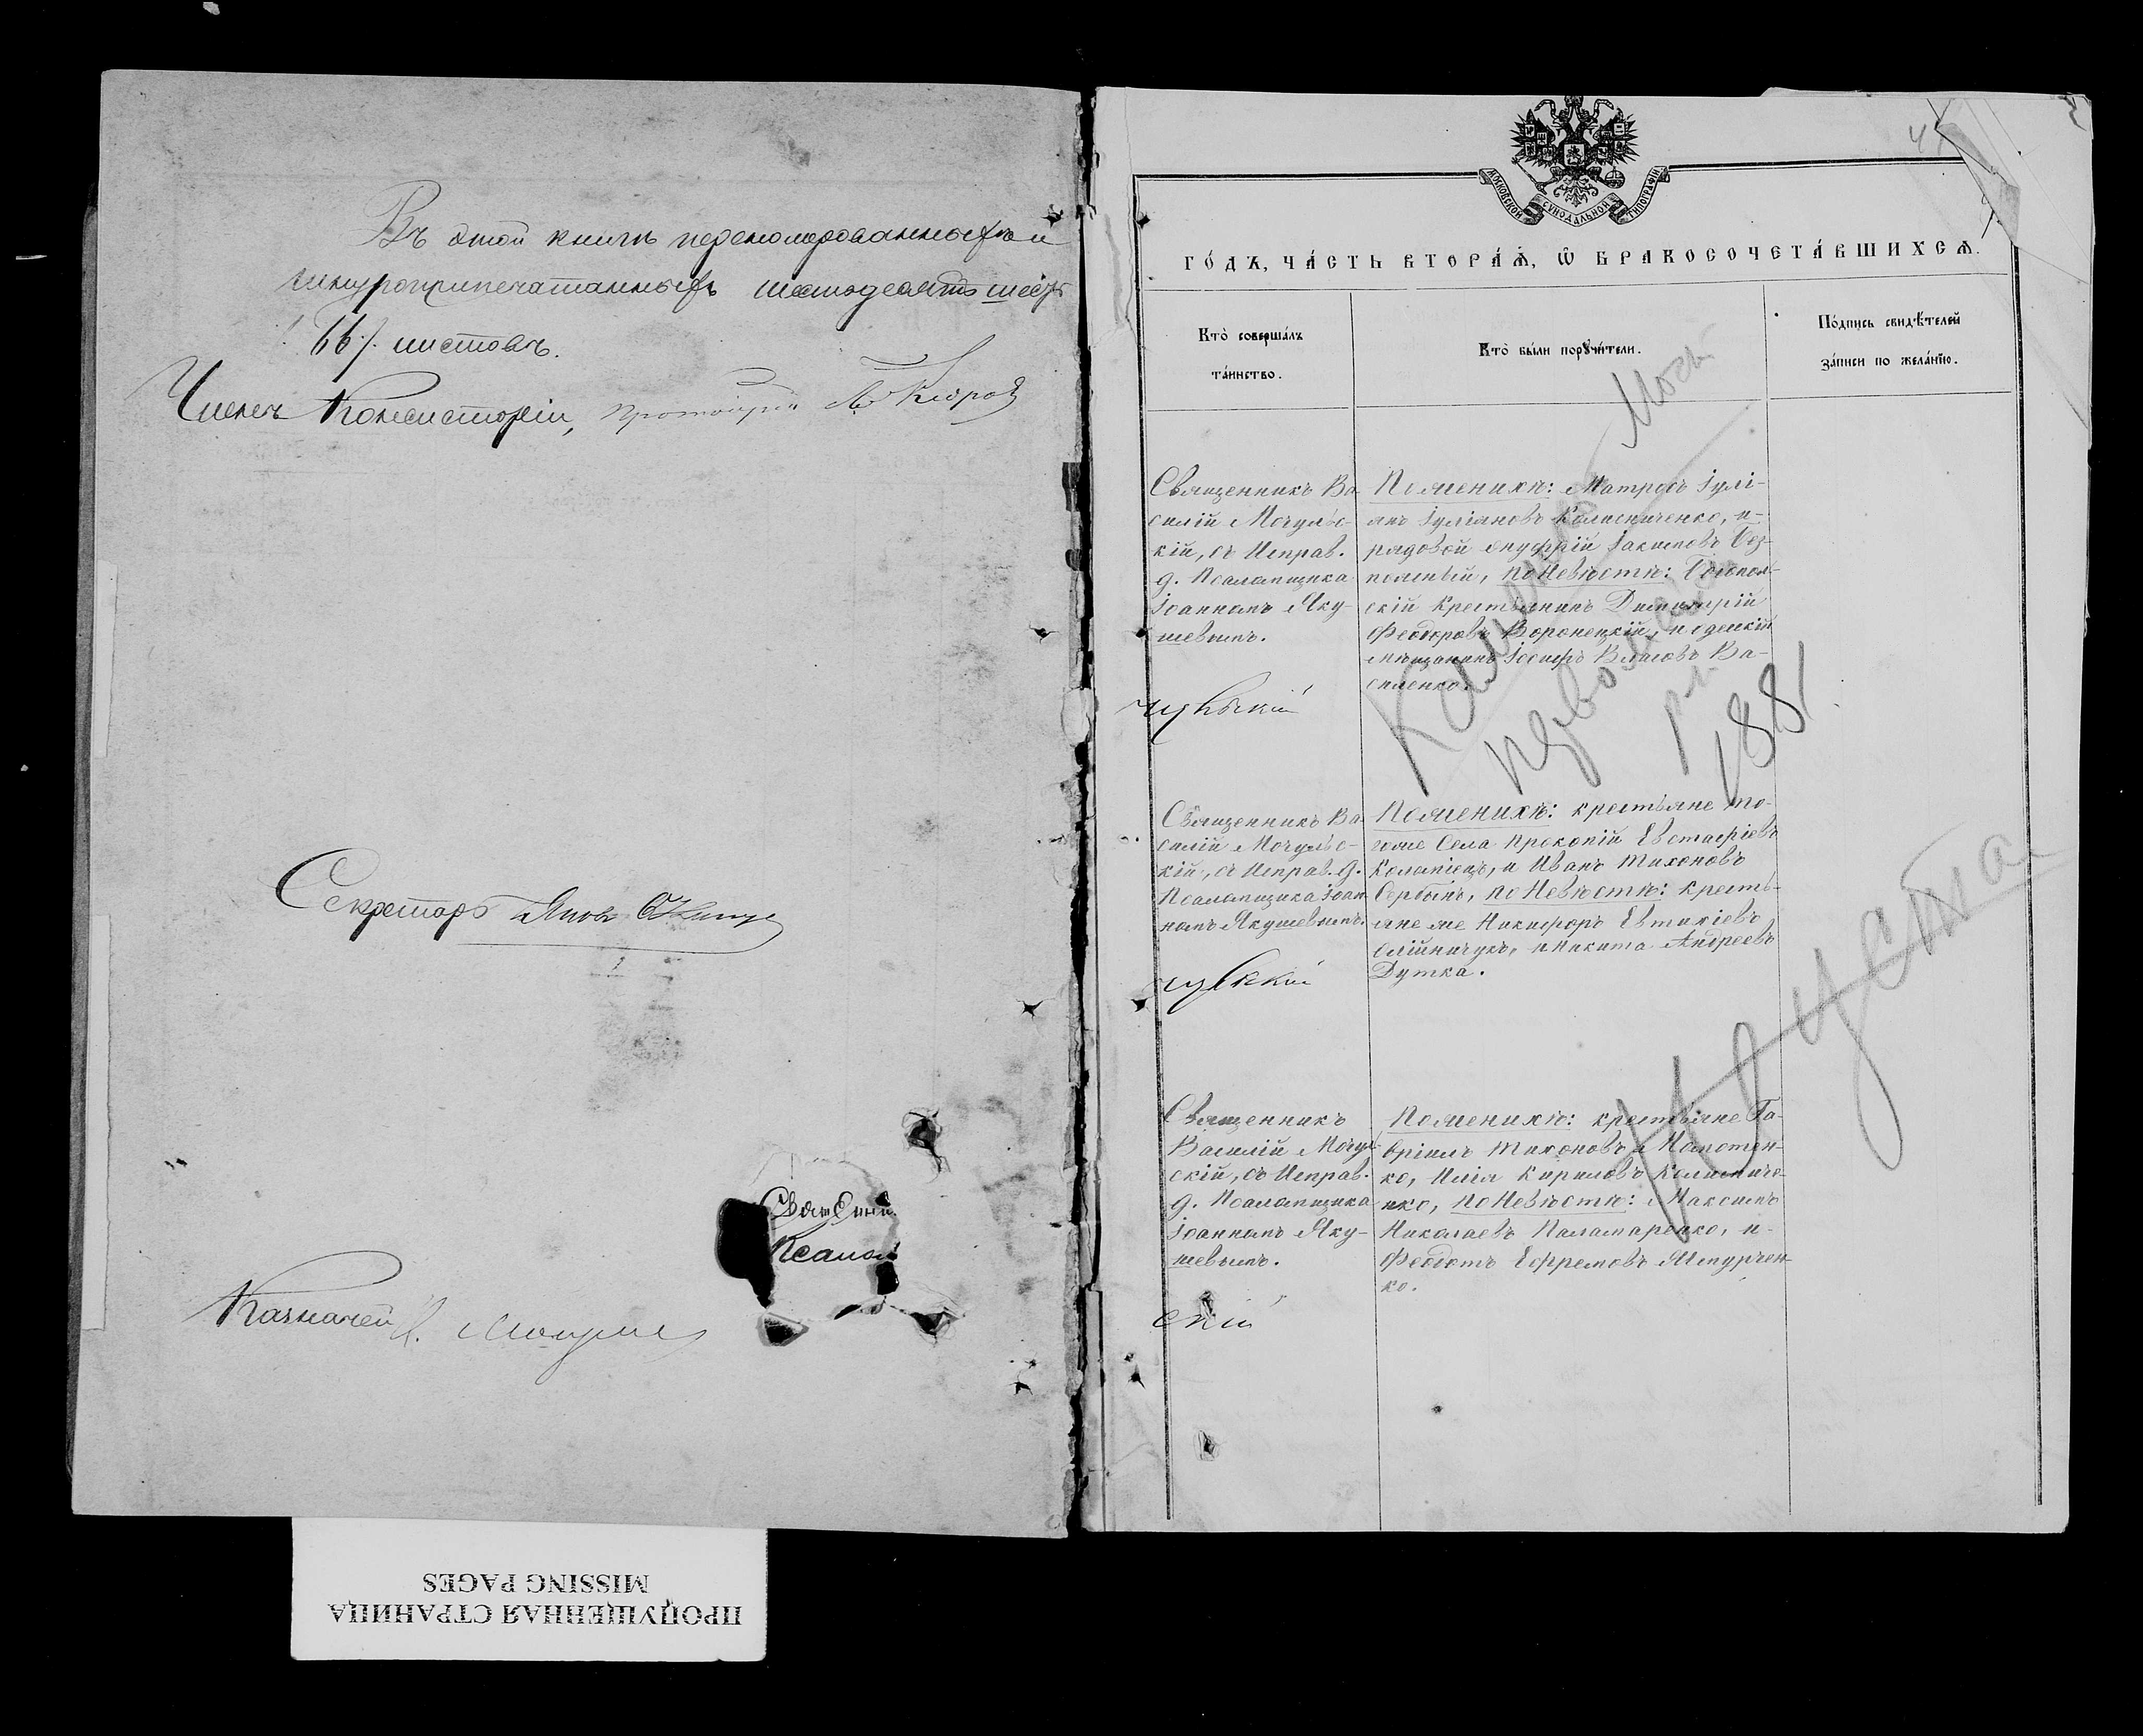 Въ этой книгѣ перенумерованныхъ и
шнуроприпечатанныхъ шестьдесятъ шесть
66/. листовъ.
Членъ Консисторіи, протоіерей
Секретарь
Казначей
МОСКОВСКОЙ СУНОДАЛЬНОЙ ТИПОГРАФІИ
ГО́ДЪ, ЧА́СТЬ ВТОРА́Ѧ, Ѡ҆ БРАКОСОЧЕТА́ВШИХСѦ.
Кто̀ соверша́лъ
та́инство.
Кто̀ бы́ли порꙋчи́тели.
По́дпись свидѣ́телей
за́писи по жела́нїю.
Священникъ Ва-
силій Мочульс-
кій, съ Исправ.
д. Псаломщика
Іоанномъ Яку-
шевымъ.
По женихѣ: Матросъ Іулі-
анъ Іуліановъ Колисниченко, и-
рядовой Онуфрій Іакимовъ Без-
пояный, по Невѣстѣ: Богопол-
скій Крестьянинъ Димитрій
Феодоровъ Воронецкій, и одескій
мѣщанинъ Іосифъ Власовъ Ва-
силенко.
1881
Священникъ Ва-
силій Мочульс-
кій, съ Исправ. д.
Псаломщика Іоан-
номъ Якушевымъ.
По женихѣ: крестьяне то-
гоже Села Прокопій Евстафіевъ
Коломіецъ, и Иванъ Тихоновъ
Сербинъ, по Невѣстѣ: кресть-
яне же Никифоръ Евтихіевъ
Олійничукъ, и Никита Андреевъ
Дутка.
Священникъ
Василій Мочул-
скій, съ Исправ.
д. Псаломщика
Іоанномъ Яку-
шевымъ.
скій
По женихѣ: крестьяне Га-
вріилъ Тихоновъ Молотен-
ко, Илія Кириловъ Колисниче-
нко, по Невѣстѣ: Максимъ
Николаевъ Паламаренко, и-
Феодотъ Ефремовъ
ко.
ПРОПУЩЕННАЯ СТРАНИЦА
MISSING PAGES